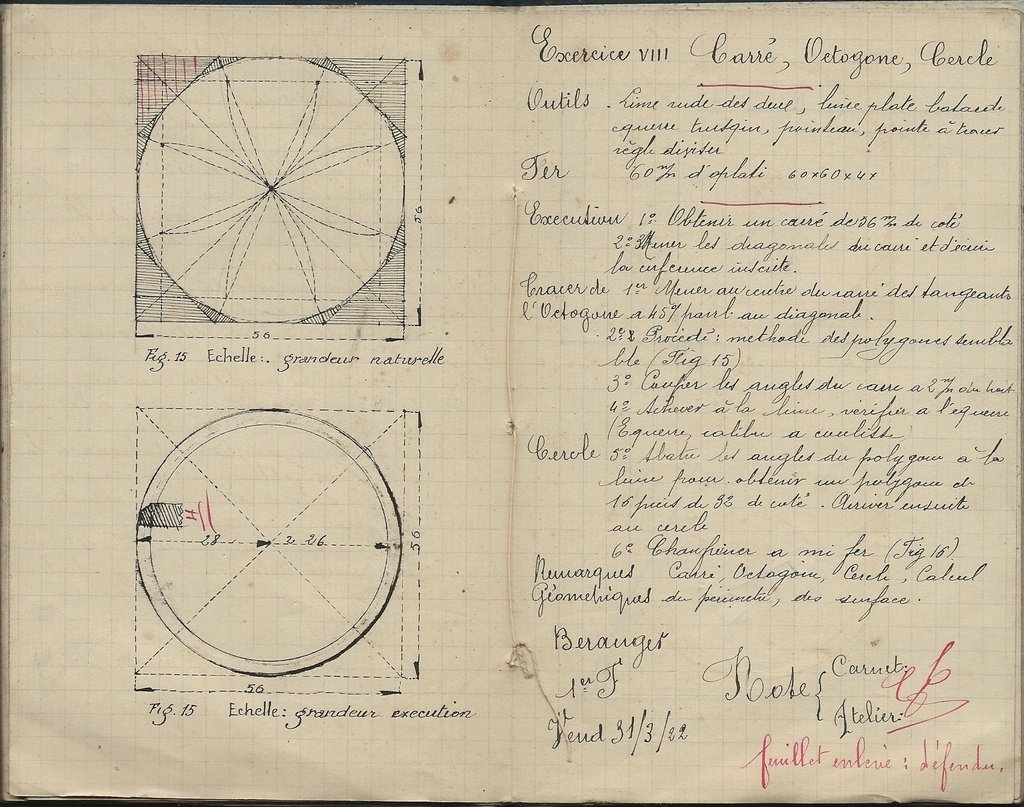 56
56
Fig. 15 Echelle: grandeur naturelle
4
28
r 26
56
56
Fig. 15 Echelle: grandeur execution
Exercice VIII Carré, Octogone, Cercle
Outils . Lime rude des deux, lime plate batarde
equerre trusquin, pointeau, pointe à tracer
règle diviser
Fer 60 m/m d'aplati 60x60x4x
Execution 1º Obtenir un carré de 56 m/m de coté
2º Mener les diagonales du carré et d'écrire
la conference inscrite.
Tracer de 1er Mener au centre du carré des tangeants
l'Octogone a 45º parll au diagonale.
2º Procédé: methode des polygones sembla
ble (Fig 15)
3º Couper les angles du carre a 2 m/m du trait
4º Achever à la lime, vérifier a l'equerre
(Equerre, calibre a coulisse
Cercle 5º Abatre les angles du polygone à la
lime pour obtenir un polygone de
16 puis de 32 de coté. Arriver ensuite
au cercle
6º Chanfreiner a mi fer (Fig 16)
Remarques Carré, Octogone, Cercle, Calcul
Géometriques du perimetre, des surface.
Beranger
1er F
Vend 31/3/22
Note { Carnet:
Atelier:
feuillet enlevé : défendu.